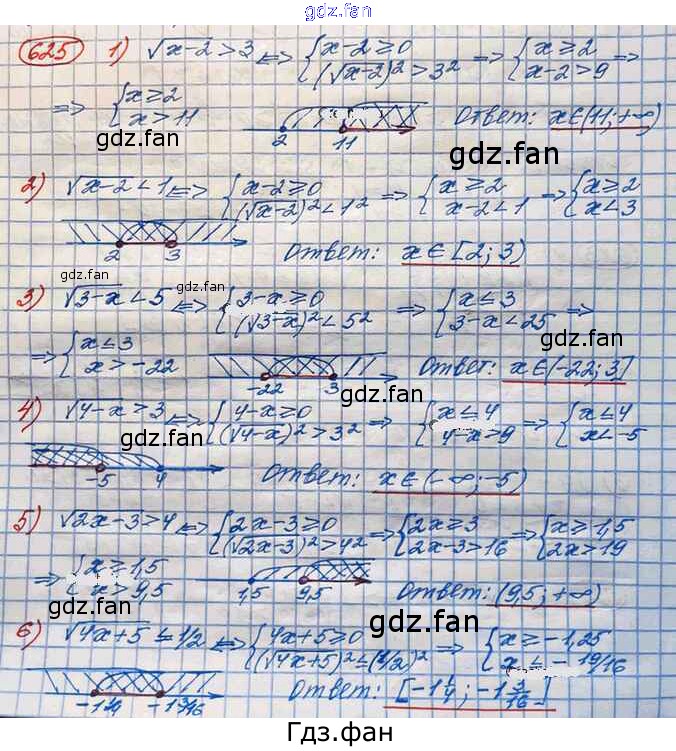 gdz.fan
625 1) √x-2 > 3 <=> {x-2 ≥ 0 (√x-2)² > 3² => {x ≥ 2 x-2 > 9 =>
=> {x ≥ 2 x > 11
2 11 Ответ: x∈(11; +∞)
gdz.fan gdz.fan
2) √x-2 < 1 <=> {x-2 ≥ 0 (√x-2)² < 1² => {x ≥ 2 x-2 < 1 => {x ≥ 2 x < 3
2 3 Ответ: x∈[2; 3)
gdz.fan
gdz.fan
3) √3-x < 5 <=> {3-x ≥ 0 (√3-x)² < 5² => {x ≤ 3 3-x < 25 =>
gdz.fan
=> {x ≤ 3 x > -22
-22 3 Ответ: x∈(-22; 3]
4) √4-x > 3 <=> {4-x ≥ 0 (√4-x)² > 3² => {x ≤ 4 4-x > 9 => {x ≤ 4 x < -5
gdz.fan gdz.fan
-5 4 Ответ: x∈(-∞; -5)
5) √2x-3 > 4 <=> {2x-3 ≥ 0 (√2x-3)² > 4² => {2x ≥ 3 2x-3 > 16 => {x ≥ 1,5 2x > 19
gdz.fan
=> {x ≥ 1,5 x > 9,5
1,5 9,5 Ответ: (9,5; +∞)
gdz.fan gdz.fan
6) √4x+5 ≤ 1/2 <=> {4x+5 ≥ 0 (√4x+5)² ≤ (1/2)² => {x ≥ -1,25 x ≤ -19/16
-1 1/4 -1 3/16 Ответ: [-1 1/4; -1 3/16]
gdz.fan
Гдз.фан